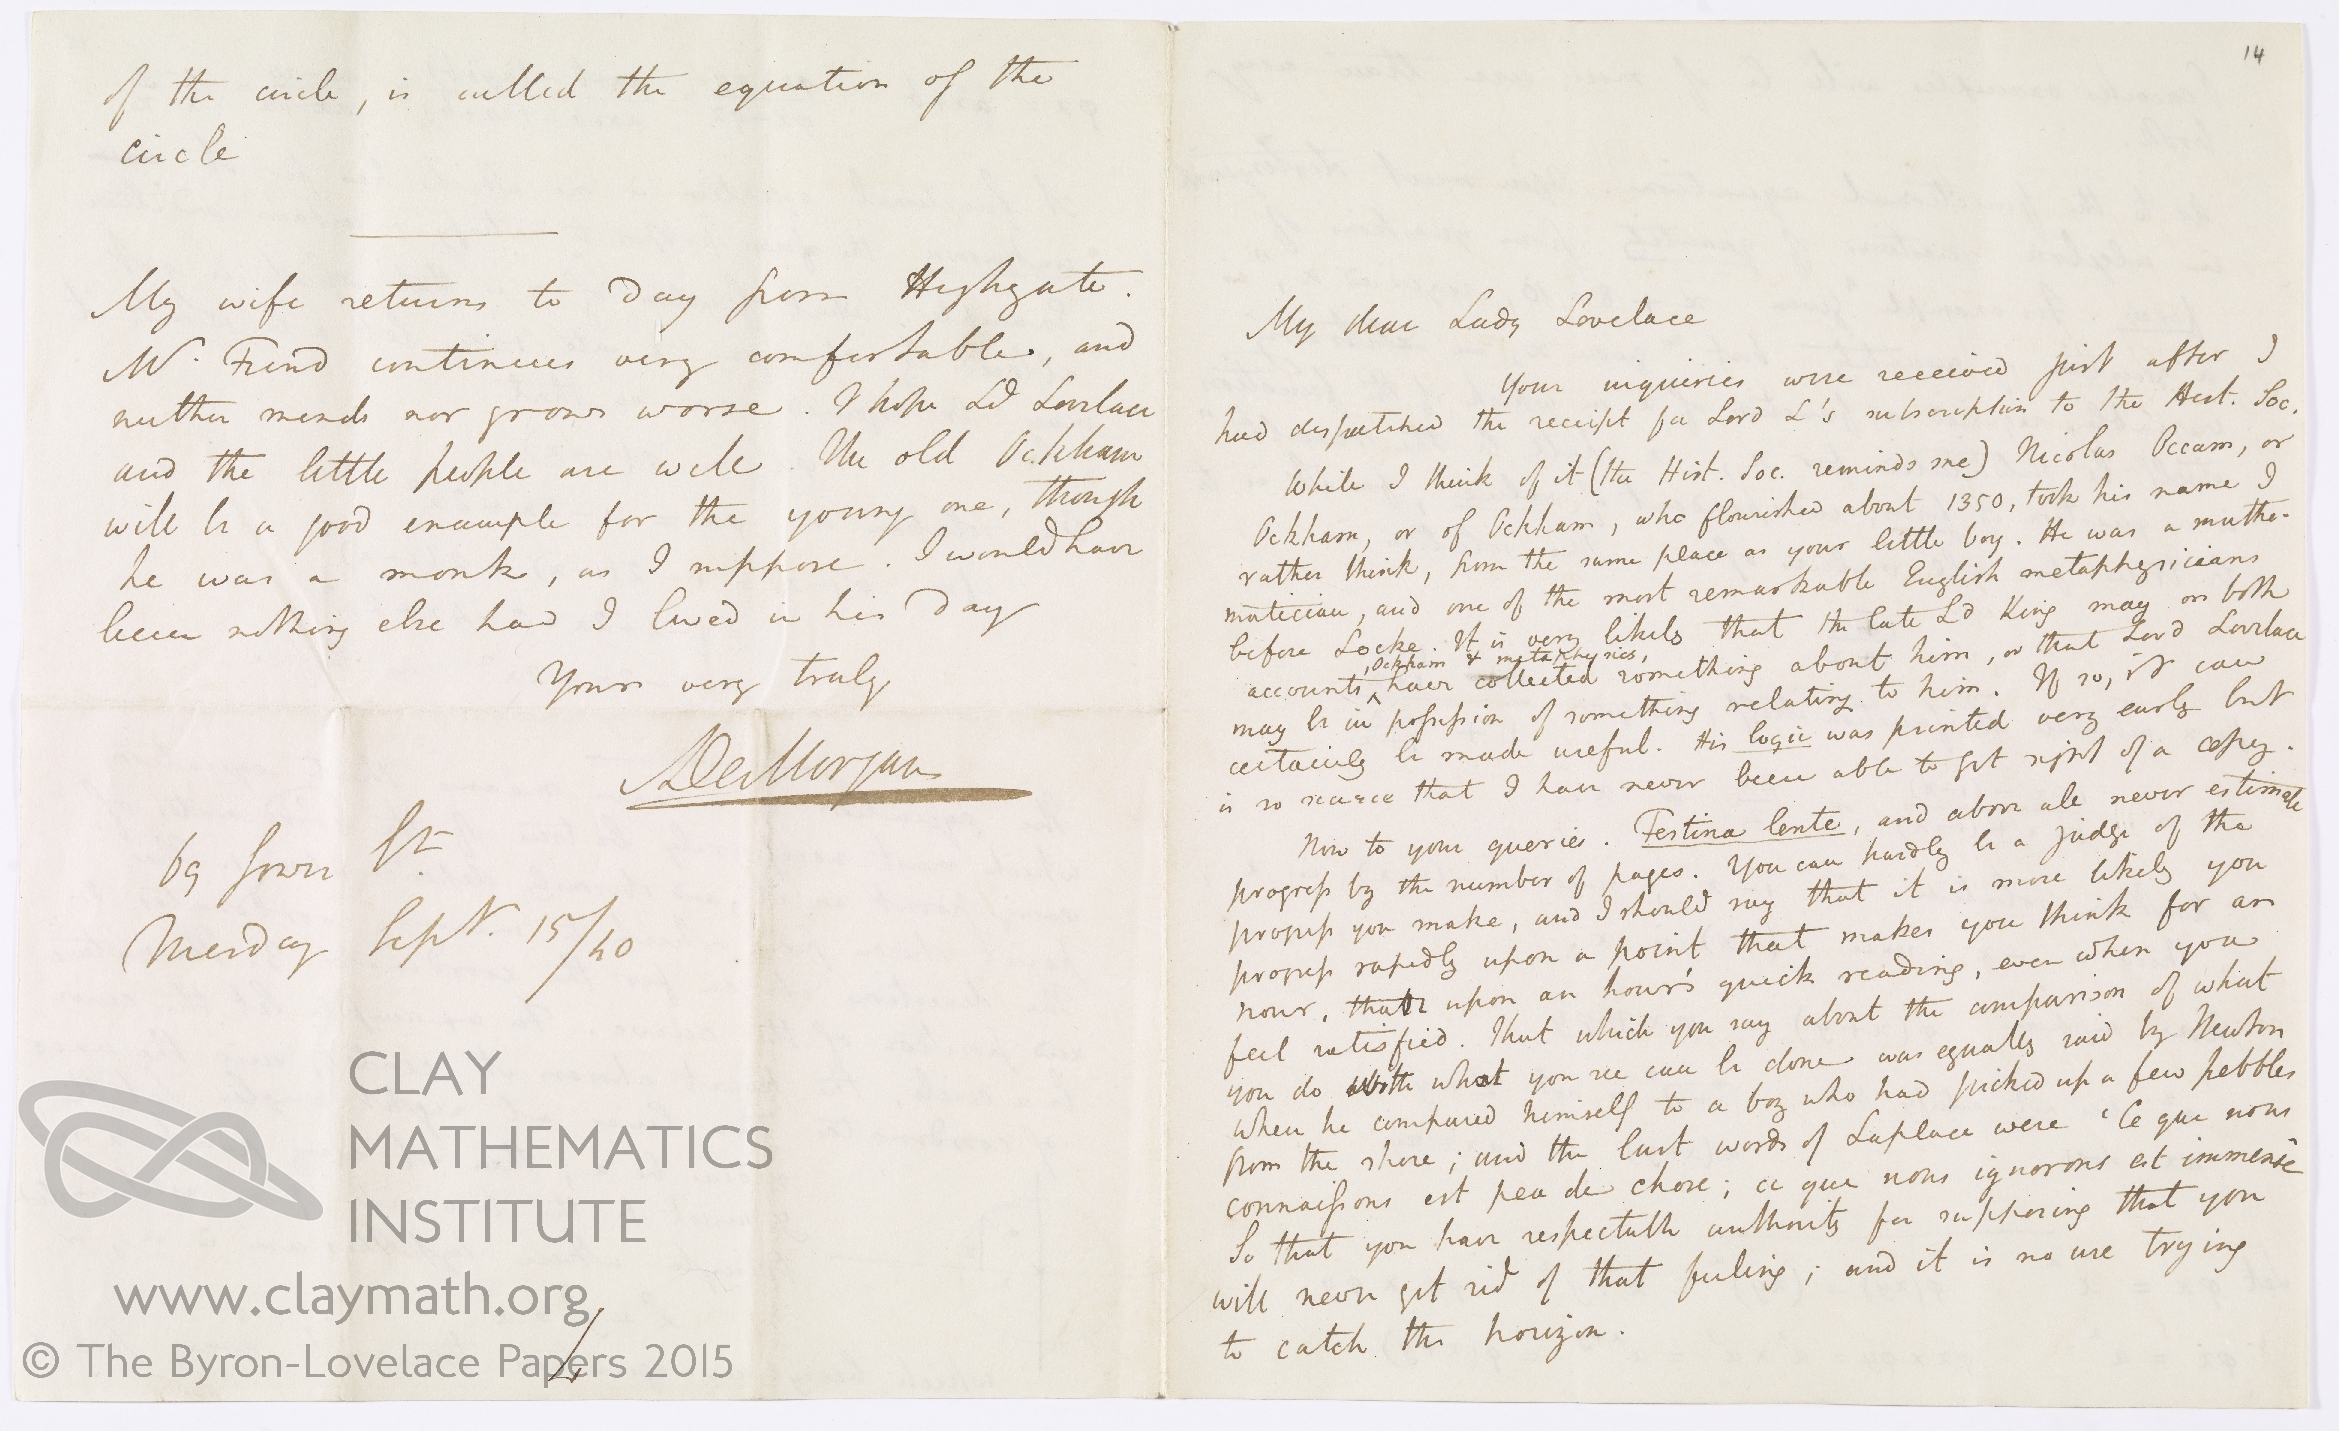 of the circle, is called the equation of the
circle
My wife returns to day from Highgate.
Mr. Frend continues very comfortable, and
neither mends nor grows worse. I hope Ld Lovelace
and the little people are well. The old Ockham
will be a good example for the young one, though
he was a monk, as I suppose. I would have
been nothing else had I lived in his day
Yours very truly
ADeMorgan
69 Gower St.
Tuesday Sept. 15/40
CLAY
MATHEMATICS
INSTITUTE
www.claymath.org
© The Byron-Lovelace Papers 2015
14
My dear Lady Lovelace
Your inquiries were received just after I
had despatched the receipt for Lord L's subscription to the Hist. Soc.
While I think of it (the Hist. Soc. reminds me) Nicolas Occam, or
Ockham, or of Ockham, who flourished about 1350, took his name I
rather think, from the same place as your little boy. He was a mathe-
matician, and one of the most remarkable English metaphysicians
before Locke. It is very likely that the late Ld King may on both
accounts, Ockham & metaphysics, have collected something about him, or that Lord Lovelace
may be in possession of something relating to him. If so, it can
certainly be made useful. His logic was printed very early but
is so scarce that I have never been able to get sight of a copy.
Now to your queries. Festina lente, and above all never estimate
progress by the number of pages. You can hardly be a judge of the
progress you make, and I should say that it is more likely you
progress rapidly upon a point that makes you think for an
hour, than upon an hour's quick reading, even when you
feel satisfied. That which you say about the comparison of what
you do with what you see can be done was equally said by Newton
when he compared himself to a boy who had picked up a few pebbles
from the shore; and the last words of Laplace were 'Ce que nous
connaissons est peu de chose; ce que nous ignorons est immense
So that you have respectable authority for supposing that you
will never get rid of that feeling; and it is no use trying
to catch the horizon.